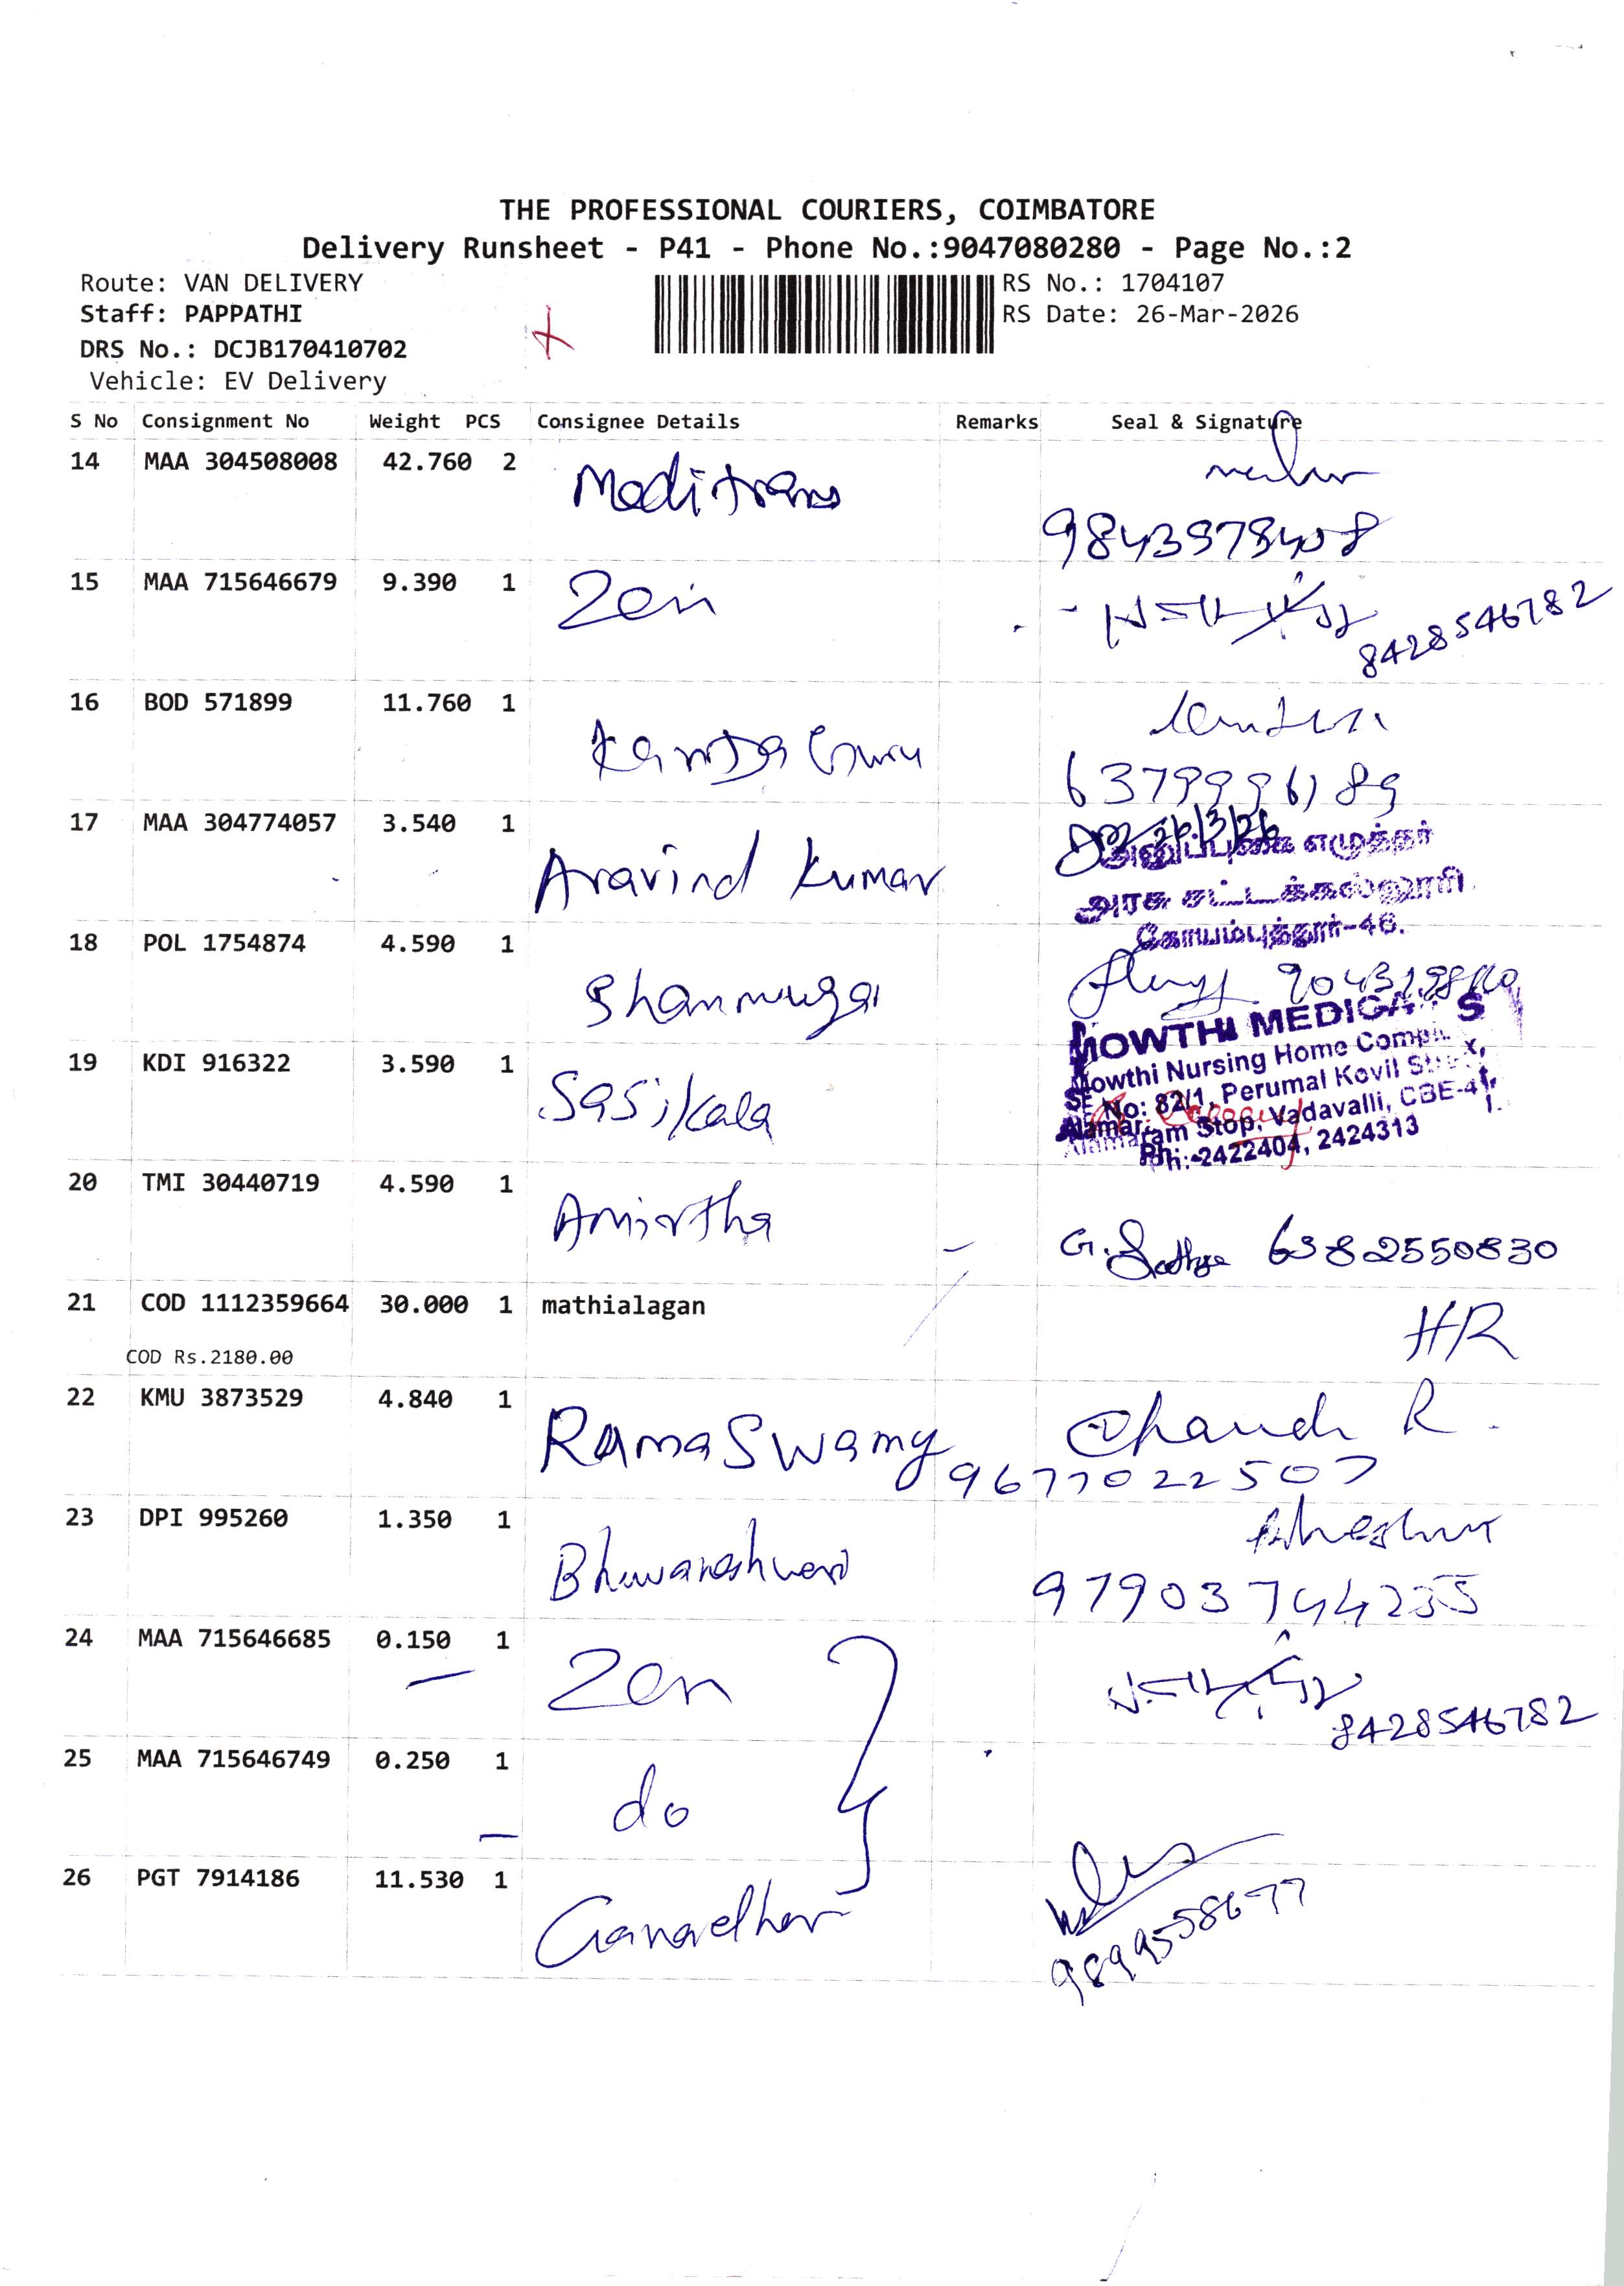 THE PROFESSIONAL COURIERS, COIMBATORE
Delivery Runsheet - P41 - Phone No.:9047080280 - Page No.:2
Route: VAN DELIVERY
RS No.: 1704107
Staff: PAPPATHI
RS Date: 26-Mar-2026
DRS No.: DCJB170410702
Vehicle: EV Delivery
S No Consignment No Weight PCS Consignee Details Remarks Seal & Signature
14 MAA 304508008 42.760 2 Meditrans
15 MAA 715646679 9.390 1 Zen
8428546782
16 BOD 571899 11.760 1 Kanda Guru
17 MAA 304774057 3.540 1 Aravind Kumar
26/3/26
அனுப்புகை எழுத்தர்
அரசு சட்டக்கல்லூரி
கோயம்புத்தூர்-46.
18 POL 1754874 4.590 1 Shanmugar
MOWTHI MEDICALS
Mowthi Nursing Home Complex,
SF No: 82/1, Perumal Kovil Street,
Alamaram Stop, Vadavalli, CBE-41.
Ph:-2422404, 2424313
19 KDI 916322 3.590 1 Sasikala
20 TMI 30440719 4.590 1 Amirtha
G. Sathya 6382550830
21 COD 1112359664 30.000 1 mathialagan
HR
COD Rs.2180.00
22 KMU 3873529 4.840 1 RamaSwamy
Chandi R.
9677022507
23 DPI 995260 1.350 1 Bhuvaneshwari
24 MAA 715646685 0.150 1 Zen
8428546782
25 MAA 715646749 0.250 1 do
26 PGT 7914186 11.530 1
9899558677